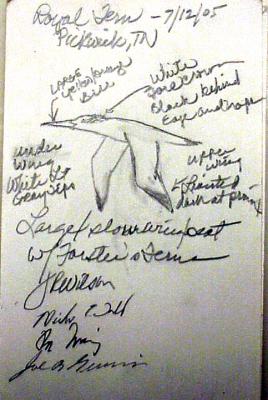 Royal Tern - 7/12/05
Pickwick, TN
Large
yellow/orange
Bill
White
forecrown
Black behind
Eye and nape
under
wing
White Lt
Gray tips
upper
wing
dark at
Large/slow wingbeat
w/ Forster's Terns
JRWilson